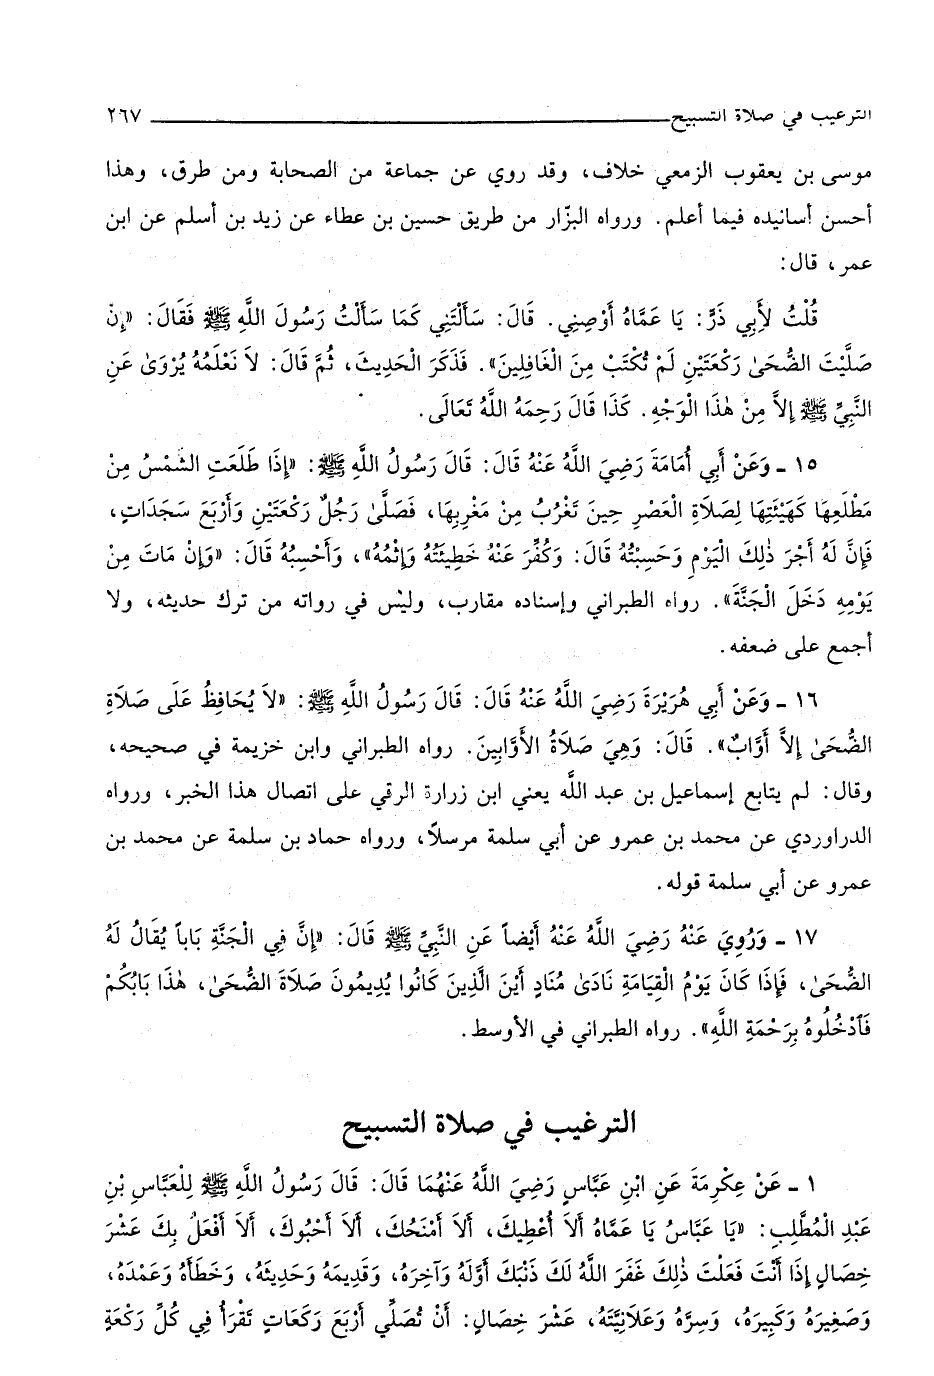 الترغيب في صلاة التسبيح ٢٦٧
موسى بن يعقوب الزمعي خلاف، وقد روي عن جماعة من الصحابة ومن طرق، وهذا
أحسن أسانيده فيما أعلم. ورواه البزّار من طريق حسين بن عطاء عن زيد بن أسلم عن ابن
عمر، قال:
قُلْتُ لأَبِي ذَرٍّ: يَا عَمَّاهُ أَوْصِنِي. قَالَ: سَأَلْتَنِي كَمَا سَأَلْتُ رَسُولَ اللَّهِ ﷺ فَقَالَ: «إِنْ
صَلَّيْتَ الضُّحَىٰ رَكْعَتَيْنِ لَمْ تُكْتَبْ مِنَ الْغَافِلِينَ». فَذَكَرَ الْحَدِيثَ، ثُمَّ قَالَ: لاَ نَعْلَمُهُ يُرْوَىٰ عَنِ
النَّبِيِّ ﷺ إِلاَّ مِنْ هٰذَا الْوَجْهِ. كَذَا قَالَ رَحِمَهُ اللَّهُ تَعَالَى.
١٥ - وَعَنْ أَبِي أُمَامَةَ رَضِيَ اللَّهُ عَنْهُ قَالَ: قَالَ رَسُولُ اللَّهِ ﷺ: «إِذَا طَلَعَتِ الشَّمْسُ مِنْ
مَطْلَعِهَا كَهَيْئَتِهَا لِصَلاَةِ الْعَصْرِ حِينَ تَغْرُبُ مِنْ مَغْرِبِهَا، فَصَلَّىٰ رَجُلٌ رَكْعَتَيْنِ وَأَرْبَعَ سَجَدَاتٍ،
فَإِنَّ لَهُ أَجْرَ ذٰلِكَ الْيَوْمِ وَحَسِبْتُهُ قَالَ: وَكُفِّرَ عَنْهُ خَطِيئَتُهُ وَإِثْمُهُ»، وَأَحْسِبُهُ قَالَ: «وَإِنْ مَاتَ مِنْ
يَوْمِهِ دَخَلَ الْجَنَّةَ». رواه الطبراني وإسناده مقارب، وليْس في رواته من ترك حديثه، ولا
أجمع على ضعفه.
١٦ - وَعَنْ أَبِي هُرَيْرَةَ رَضِيَ اللَّهُ عَنْهُ قَالَ: قَالَ رَسُولُ اللَّهِ ﷺ: «لاَ يُحَافِظُ عَلَى صَلاَةِ
الضُّحَىٰ إِلاَّ أَوَّابٌ». قَالَ: وَهِيَ صَلاَةُ الأَوَّابِينَ. رواه الطبراني وابن خزيمة في صحيحه،
وقال: لم يتابع إسماعيل بن عبد اللَّه يعني ابن زرارة الرقي على اتصال هذا الخبر، ورواه
الدراوردي عن محمد بن عمرو عن أبي سلمة مرسلاً، ورواه حماد بن سلمة عن محمد بن
عمرو عن أبي سلمة قوله.
١٧ - وَرُوِيَ عَنْهُ رَضِيَ اللَّهُ عَنْهُ أَيْضاً عَنِ النَّبِيِّ ﷺ قَالَ: «إِنَّ فِي الْجَنَّةِ بَاباً يُقَالُ لَهُ
الضُّحَىٰ، فَإِذَا كَانَ يَوْمُ الْقِيَامَةِ نَادَىٰ مُنَادٍ أَيْنَ الَّذِينَ كَانُوا يُدِيمُونَ صَلاَةَ الضُّحَىٰ، هٰذَا بَابُكُمْ
فَٱدْخُلُوهُ بِرَحْمَةِ اللَّهِ». رواه الطبراني في الأوسط.
الترغيب في صلاة التسبيح
١ - عَنْ عِكْرِمَةَ عَنِ ابْنِ عَبَّاسٍ رَضِيَ اللَّهُ عَنْهُمَا قَالَ: قَالَ رَسُولُ اللَّهِ ﷺ لِلْعَبَّاسِ بْنِ
عَبْدِ الْمُطَّلِبِ: «يَا عَبَّاسُ يَا عَمَّاهُ أَلاَ أُعْطِيكَ، أَلاَ أَمْنَحُكَ، أَلاَ أَحْبُوكَ، أَلاَ أَفْعَلُ بِكَ عَشْرَ
خِصَالٍ إِذَا أَنْتَ فَعَلْتَ ذٰلِكَ غَفَرَ اللَّهُ لَكَ ذَنْبَكَ أَوَّلَهُ وَآخِرَهُ، وَقَدِيمَهُ وَحَدِيثَهُ، وَخَطَأَهُ وَعَمْدَهُ،
وَصَغِيرَهُ وَكَبِيرَهُ، وَسِرَّهُ وَعَلاَنِيَّتَهُ، عَشْرَ خِصَالٍ: أَنْ تُصَلِّي أَرْبَعَ رَكَعَاتٍ تَقْرَأُ فِي كُلِّ رَكْعَةٍ